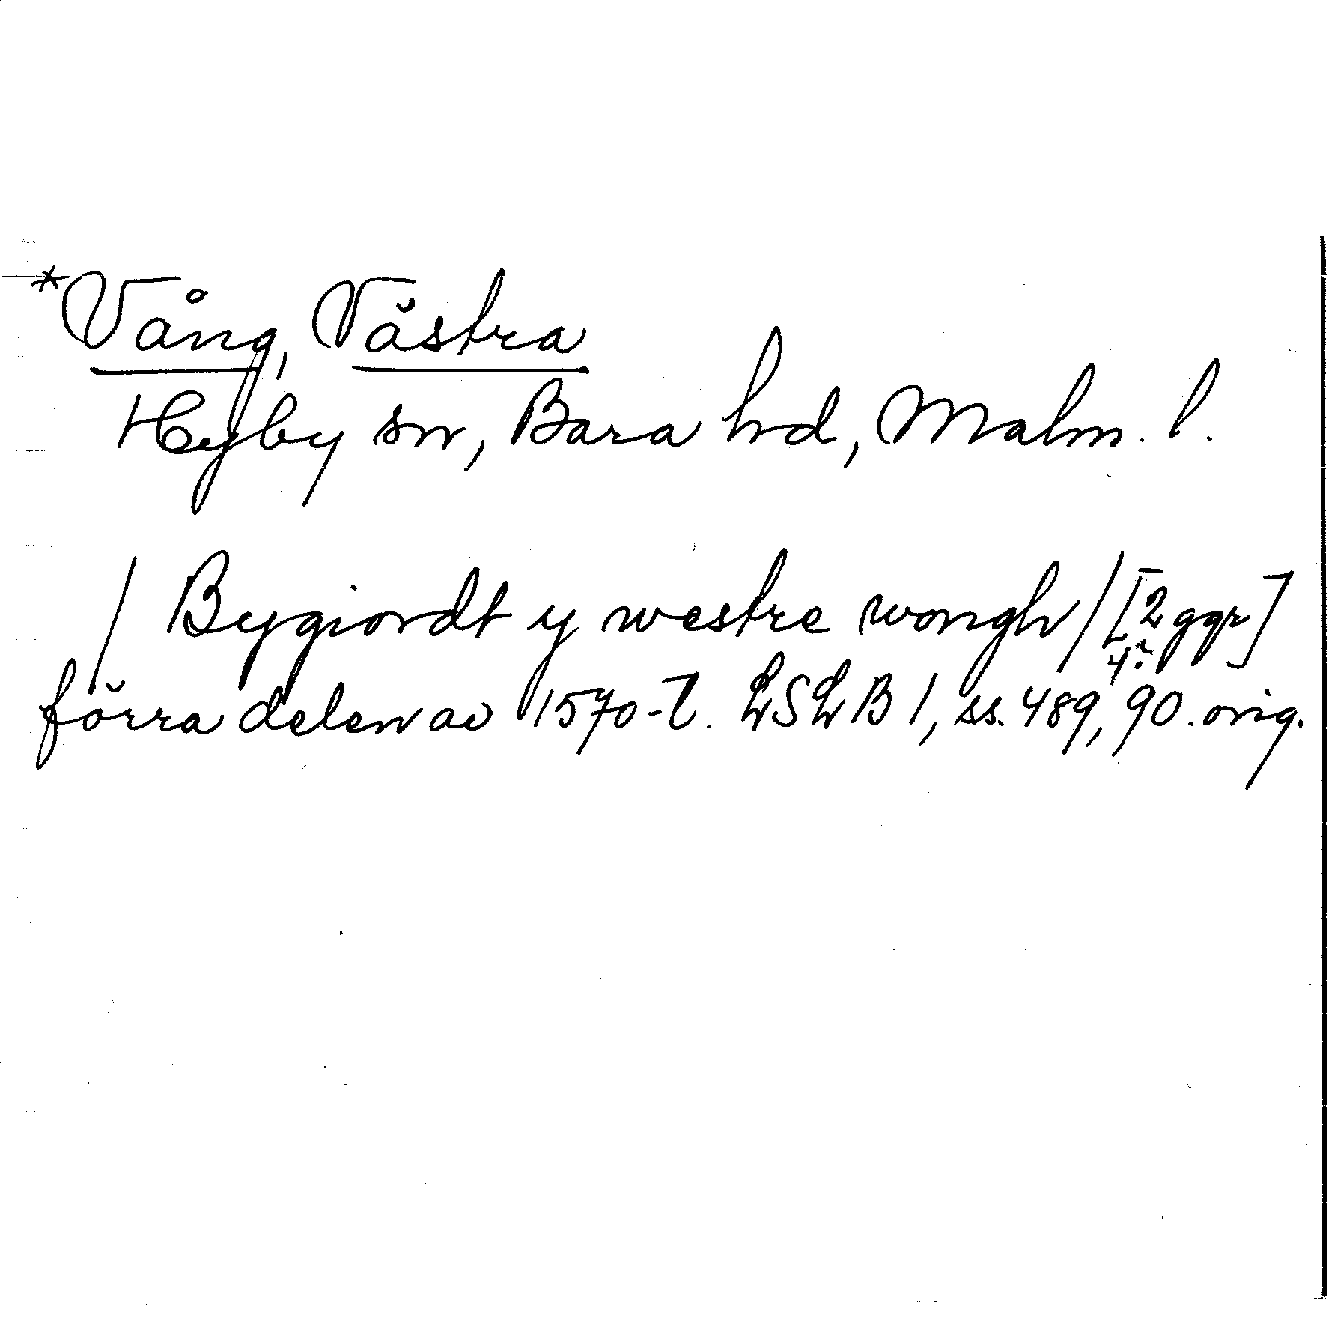 *Vång, Västra
Hyby sn, Bara hd, Malm. l.
/ Bygiordt y westre wongh / [2 ggr]
förra delen av 1570-t. LSLB 1, ss. 489, 90. orig.